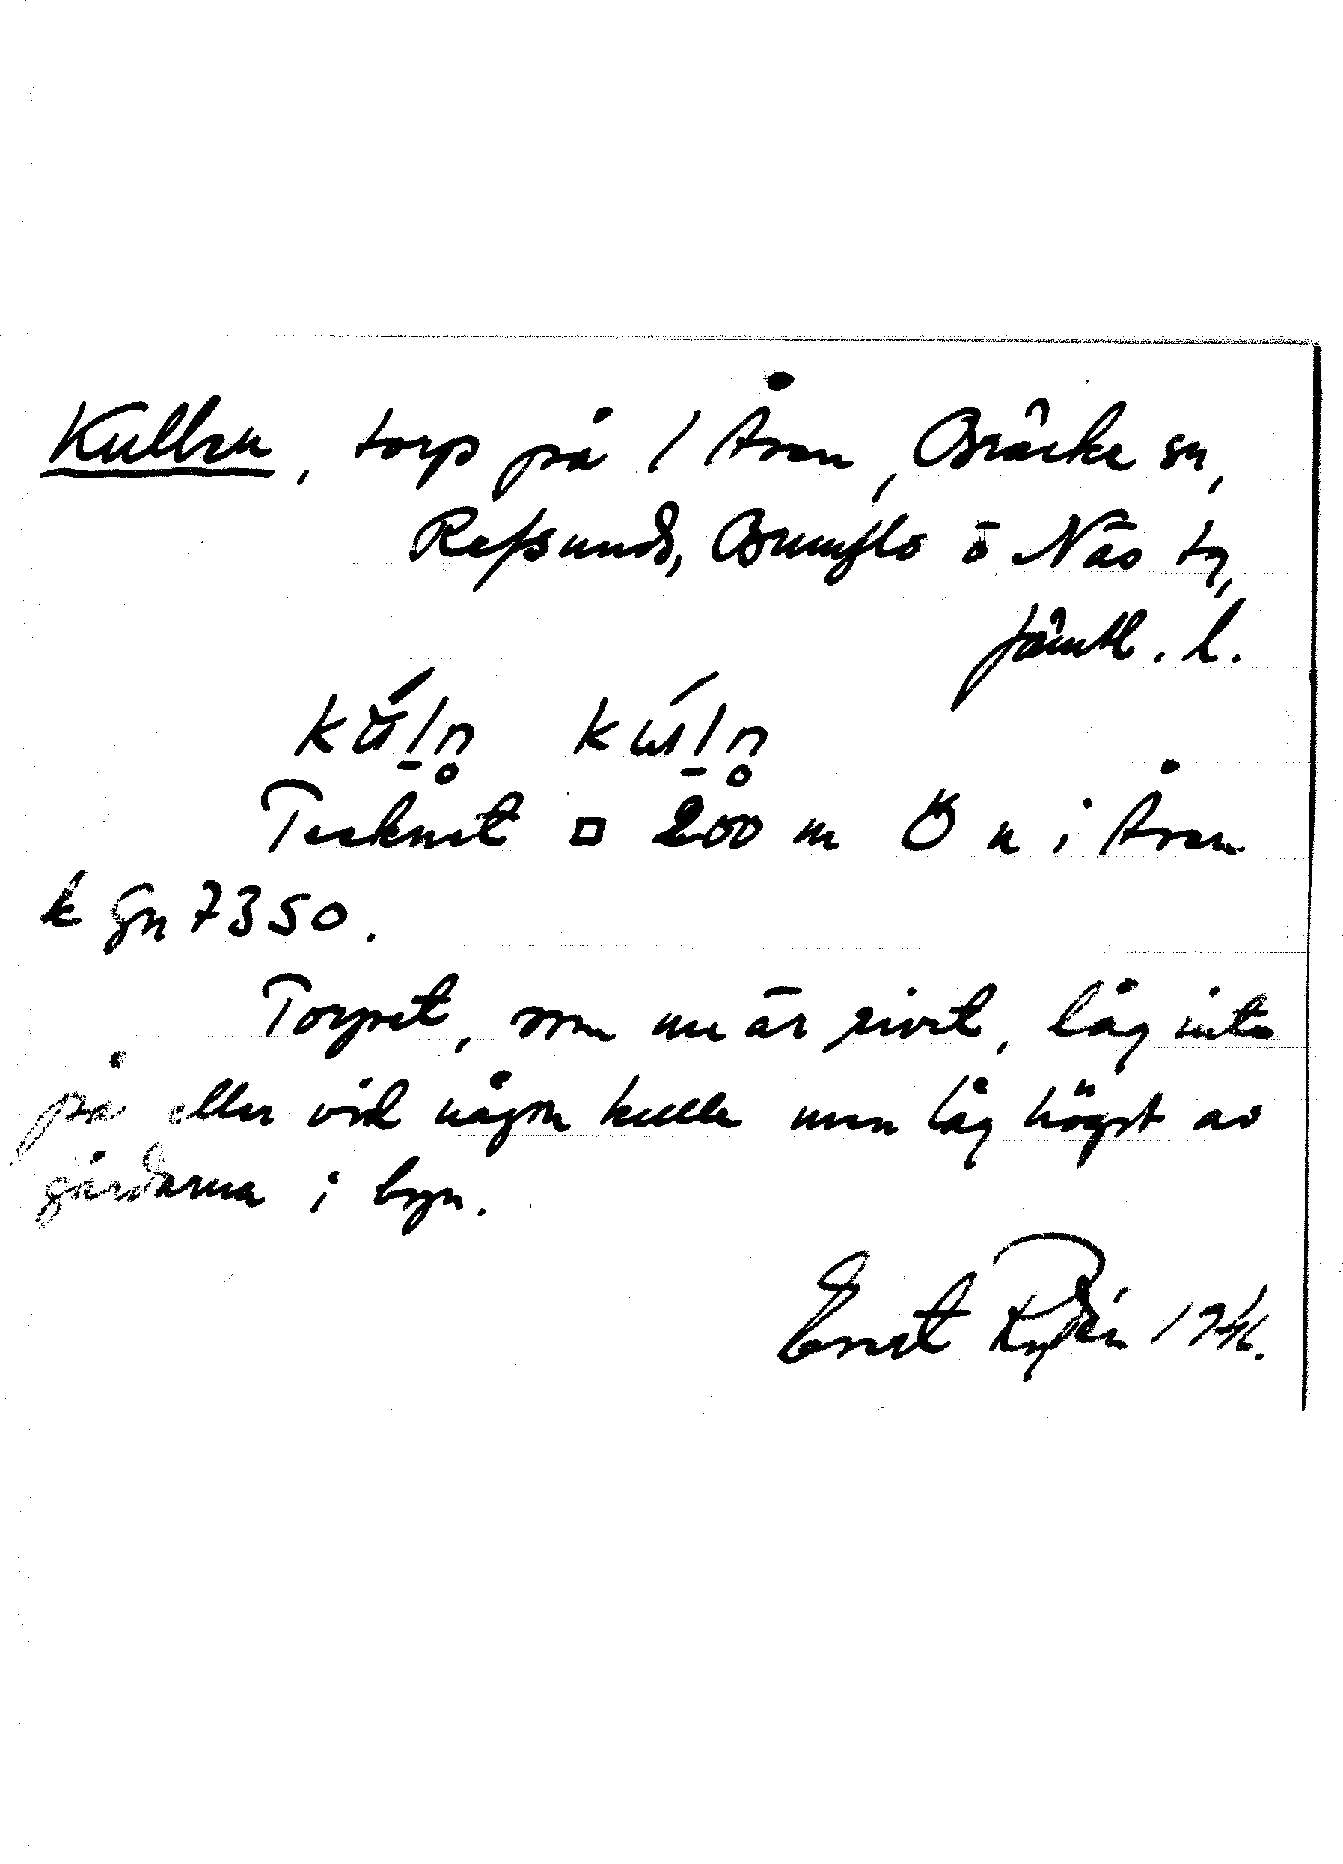 Kullen, torp på 1 Åsen, Bräcke sn,
Refsunds, Brunflo o Näs tg,
Jämtl. l.
Tecknat □ 200 m Ö n i Åsen
k Gn 7350.
Torpet, som nu är rivet, låg inte
på eller vid någon kulle men låg högst av
gårdarna i byn.
Ernst Rydén 1946.